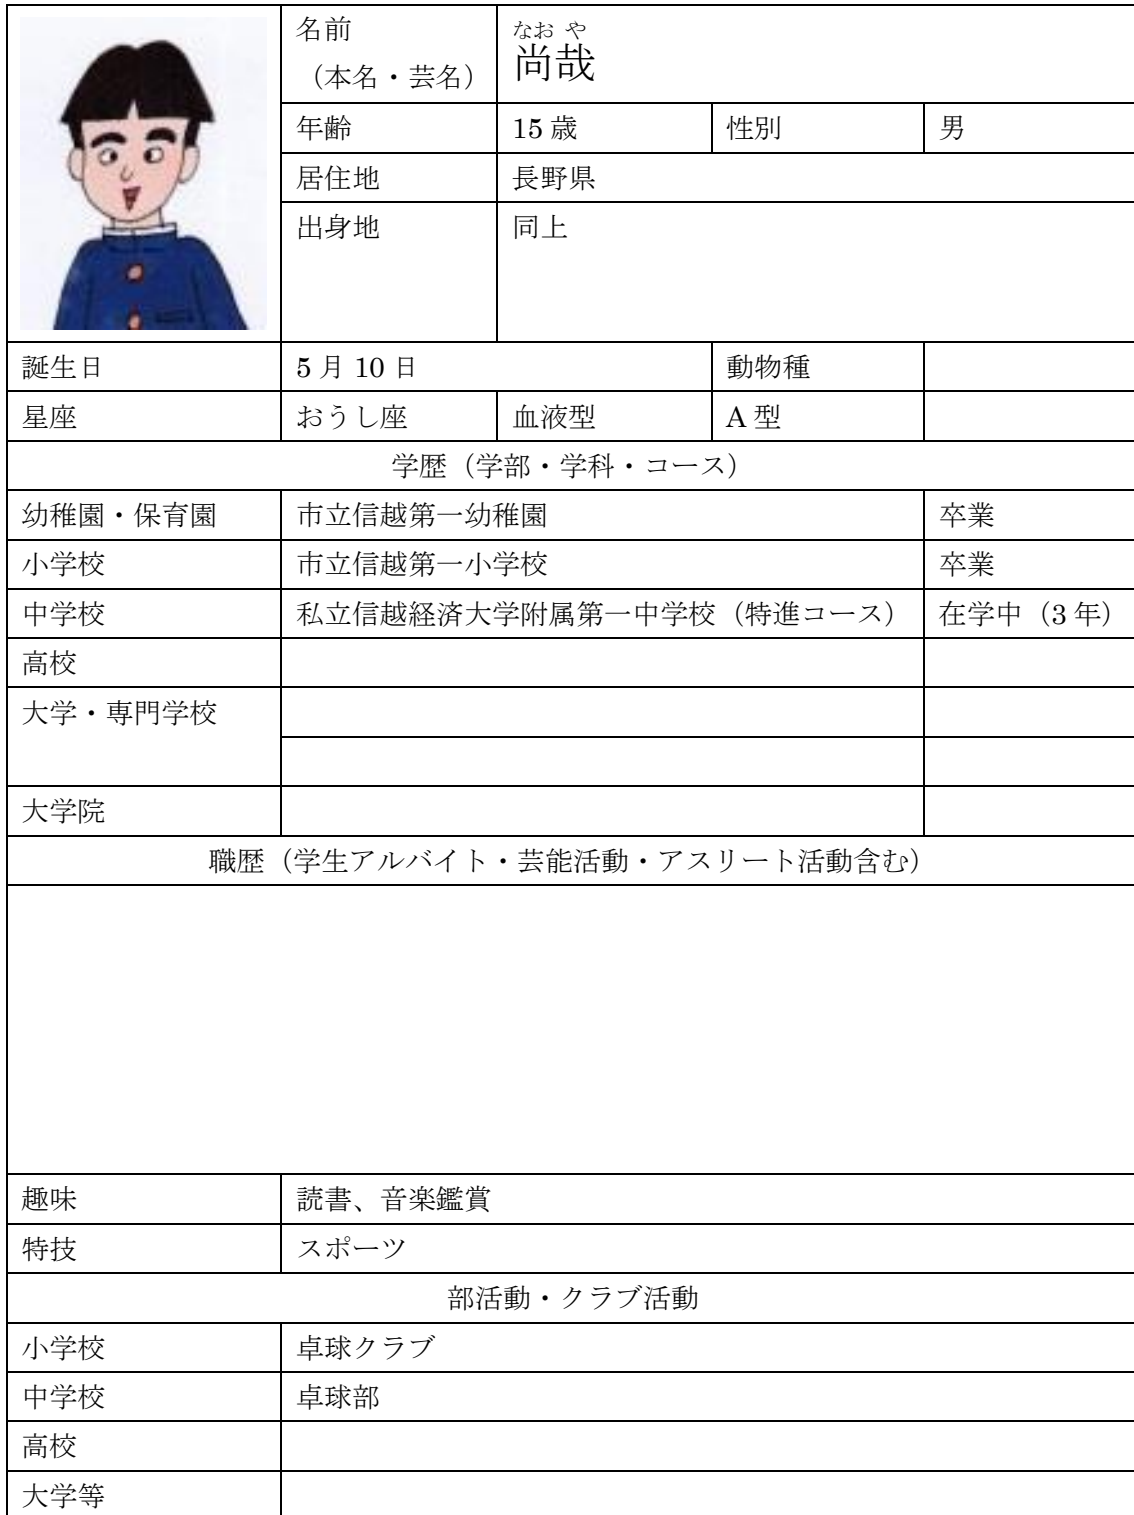 名前
（本名・芸名）
なお や
尚哉
年齢 15 歳 性別 男
居住地 長野県
出身地 同上
誕生日 5 月 10 日 動物種
星座 おうし座 血液型 A 型
学歴（学部・学科・コース）
幼稚園・保育園 市立信越第一幼稚園 卒業
小学校 市立信越第一小学校 卒業
中学校 私立信越経済大学附属第一中学校（特進コース） 在学中（3 年）
高校
大学・専門学校
大学院
職歴（学生アルバイト・芸能活動・アスリート活動含む）
趣味 読書、音楽鑑賞
特技 スポーツ
部活動・クラブ活動
小学校 卓球クラブ
中学校 卓球部
高校
大学等